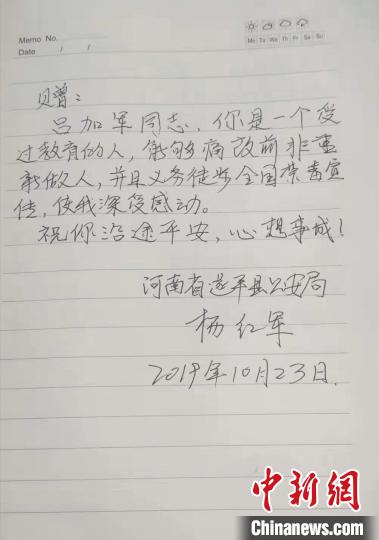 Memo No.
Mo Tu We Th Fr Sa Su
Date / /
赠：
吕加军同志，你是一个受
过教育的人，能够痛改前非重
新做人，并且义务徒步全国禁毒宣
传，使我深受感动。
祝你沿途平安，心想事成！
河南省遂平县公安局
杨红军
2019年10月23日.
中新网
Chinanews.com